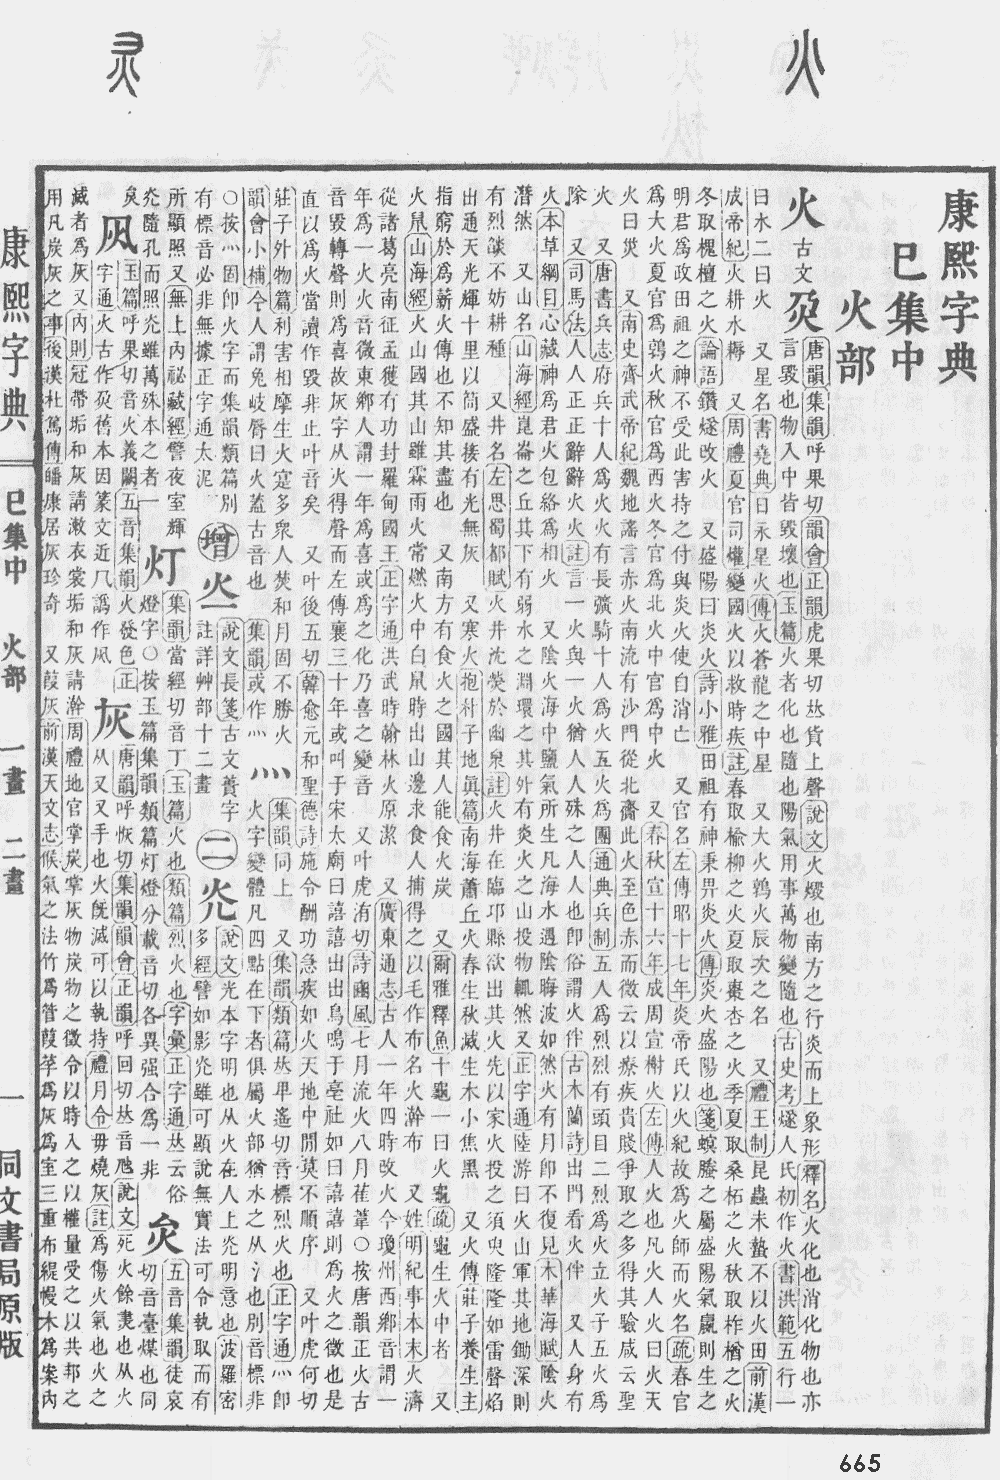 康熙字典
巳集中
火部
火 古文𤆄 唐韻集韻呼果切韻會正韻虎果切𠀤貨上聲說文火燬也南方之行炎而上象形釋名火化也消化物也亦
言毀也物入中皆毀壞也玉篇火者化也隨也陽氣用事萬物變隨也古史考燧人氏初作火書洪範五行一
曰水二曰火 又星名書堯典日永星火傳火蒼龍之中星 又大火鶉火辰次之名 又禮王制昆蟲未蟄不以火田前漢
成帝紀火耕水耨 又周禮夏官司爟變國火以救時疾註春取榆柳之火夏取棗杏之火季夏取桑柘之火秋取柞楢之火
冬取槐檀之火論語鑽燧改火 又盛陽曰炎火詩小雅田祖有神秉畀炎火傳炎火盛陽也箋螟螣之屬盛陽氣嬴則生之
明君爲政田祖之神不受此害持之付與炎火使自消亡 又官名左傳昭十七年炎帝氏以火紀故爲火師而火名疏春官
爲大火夏官爲鶉火秋官爲西火冬官爲北火中官爲中火 又春秋宣十六年成周宣榭火左傳人火也凡火人火曰火天
火曰災 又南史齊武帝紀魏地謠言赤火南流有沙門從北齎此火至色赤而微云以療疾貴賤爭取之多得其驗咸云聖
火 又唐書兵志府兵十人爲火火有長彍騎十人爲火五火爲團通典兵制五人爲烈烈有頭目二烈爲火立火子五火爲
隊 又司馬法人人正正辭辭火火註言一火與一火猶人人殊之人人也卽俗謂火伴古木蘭詩出門看火伴 又人身有
火本草綱目心藏神爲君火包絡爲相火 又陰火海中鹽氣所生凡海水遇陰晦波如然火有月卽不復見木華海賦陰火
潛然 又山名山海經崑崙之丘其下有弱水之淵環之其外有炎火之山投物輒然又正字通陸游曰火山軍其地鋤深則
有烈燄不妨耕種 又井名左思蜀都賦火井沈熒於幽泉註火井在臨邛縣欲出其火先以家火投之須臾隆隆如雷聲焰
出通天光輝十里以筒盛接有光無灰 又寒火抱朴子地眞篇南海蕭丘火春生秋滅生木小焦黑 又火傳莊子養生主
指窮於爲薪火傳也不知其盡也 又南方有食火之國其人能食火炭 又爾雅釋魚十龜一曰火龜疏龜生火中者 又
火鼠山海經火山國其山雖霖雨火常燃火中白鼠時出山邊求食人捕得之以毛作布名火澣布 又姓明紀事本末火濟
從諸葛亮南征孟獲有功封羅甸國王正字通洪武時翰林火原潔 又廣東通志古人一年四時改火今瓊州西鄉音謂一
年爲一火火音微東鄉人謂一年爲喜或爲之化乃喜之變音 又叶虎洧切詩豳風七月流火八月萑葦○按唐韻正火古
音毀轉聲則爲喜故灰字从火得聲而左傳襄三十年或叫于宋太廟曰譆譆出出鳥鳴于亳社如曰譆譆則爲火之徵也是
直以爲火當讀作毀非止叶音矣 又叶後五切韓愈元和聖德詩施令酬功急疾如火天地中閒莫不順序 又叶虎何切
莊子外物篇利害相摩生火寔多衆人焚和月固不勝火 灬 集韻同上 又集韻類篇𠀤𤰞遙切音標烈火也正字通灬卽
韻會小補今人謂兔岐脣曰火蓋古音也 集韻或作灬 火字變體凡四點在下者俱屬火部猶水之从氵也別音標非
○按灬固卽火字而集韻類篇別 增 說文長箋古文蕡字 二 灮 說文光本字明也从火在人上灮明意也波羅密
有標音必非無據正字通太泥 註詳艸部十二畫 多經譬如影灮雖可顯說無實法可令執取而有
所顯照又無上內祕藏經譬夜室輝 灯 集韻當經切音丁玉篇火也類篇烈火也字彙正字通𠀤云俗
灮隨孔而照灮雖萬殊本之者一 燈字○按玉篇集韻類篇灯燈分載音切各異强合爲一非 炱 五音集韻徒哀切音臺煤也同
炱 玉篇呼果切音火義闕五音集韻火發色正字通火古作𤆄舊本因篆文近几譌作凨 灰 唐韻呼恢切集韻韻會正韻呼回切𠀤音虺說文死火餘㶳也从火
从又又手也火旣滅可以執持禮月令毋燒灰註爲傷火氣也火之
滅者爲灰又內則冠帶垢和灰請漱衣裳垢和灰請澣周禮地官掌炭掌灰物炭物之徵令以時入之以權量受之以共邦之
用凡炭灰之事後漢杜篤傳皤康居灰珍奇 又葭灰前漢天文志候氣之法竹爲管葭莩爲灰爲室三重布緹幔木爲案內
康熙字典 巳集中 火部 一畫 二畫 一 同文書局原版
665